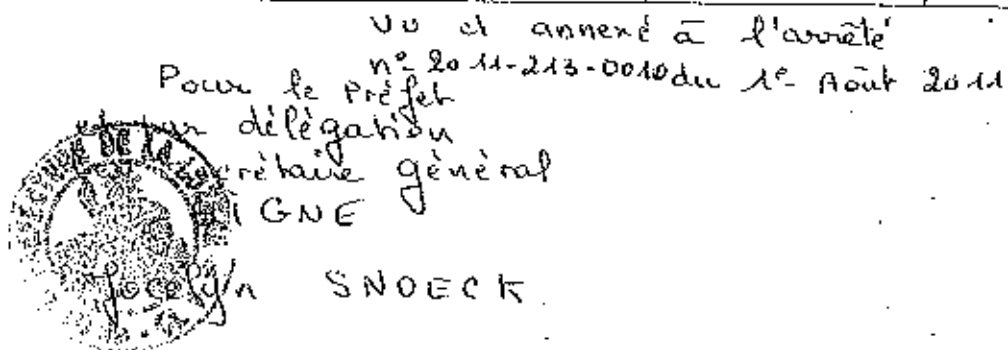 Vu et annexé à l'arrêté
n° 2011-213-0010 du 1er Août 2011
Pour le Préfet
délégation
crétaire général
IGNE
Jocelyn SNOECK